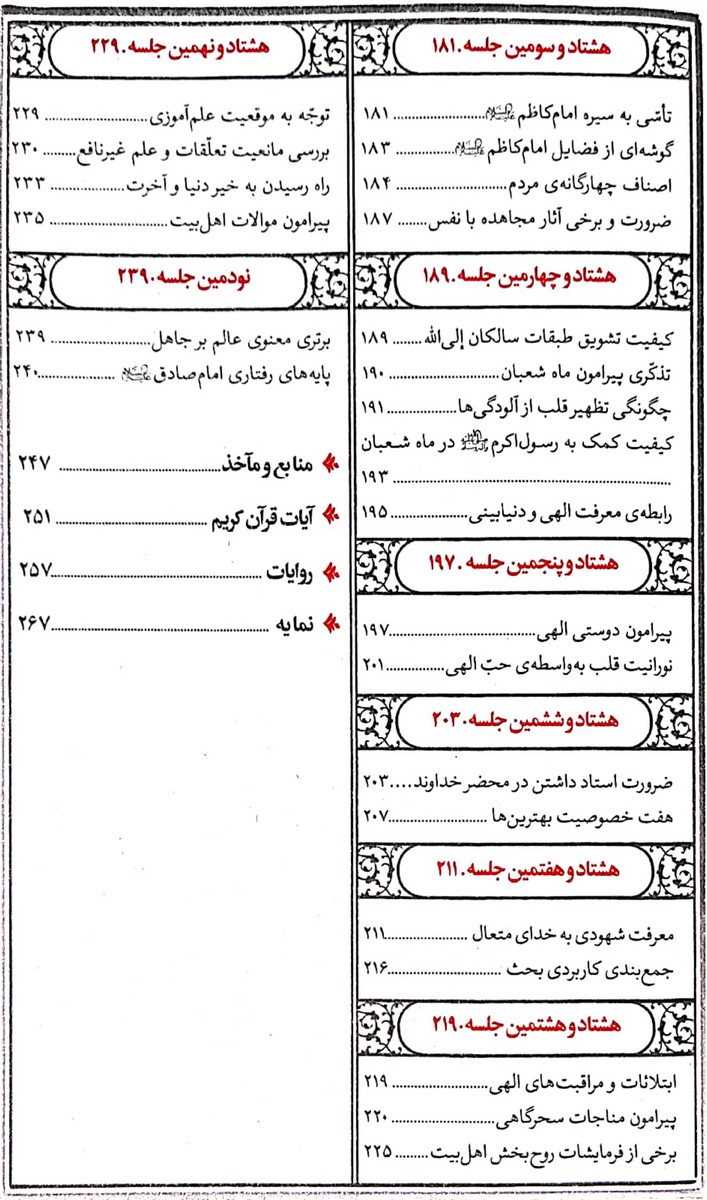 هشتاد و سومین جلسه ۱۸۱.
تأسّی به سیره امام‌کاظم علیه‌السلام ........................ ۱۸۱
گوشه‌ای از فضایل امام‌کاظم علیه‌السلام ............... ۱۸۳
اصناف چهارگانه‌ی مردم ................................... ۱۸۴
ضرورت و برخی آثار مجاهده با نفس ....... ۱۸۷
هشتاد و چهارمین جلسه ۱۸۹.
کیفیت تشویق طبقات سالکان إلی‌الله ....... ۱۸۹
تذکّری پیرامون ماه شعبان ........................... ۱۹۰
چگونگی تطهیر قلب از آلودگی‌ها ................. ۱۹۱
کیفیت کمک به رسول‌اکرم ﷺ در ماه شعبان
.................................................................. ۱۹۳
رابطه‌ی معرفت الهی و دنیابینی .................... ۱۹۵
هشتاد و پنجمین جلسه ۱۹۷.
پیرامون دوستی الهی ................................... ۱۹۷
نورانیت قلب به‌واسطه‌ی حبّ الهی .............. ۲۰۱
هشتاد و ششمین جلسه ۲۰۳.
ضرورت استاد داشتن در محضر خداوند .... ۲۰۳
هفت خصوصیت بهترین‌ها ........................ ۲۰۷
هشتاد و هفتمین جلسه ۲۱۱.
معرفت شهودی به خدای متعال .................... ۲۱۱
جمع‌بندی کاربردی بحث ........................... ۲۱۶
هشتاد و هشتمین جلسه ۲۱۹.
ابتلائات و مراقبت‌های الهی ........................ ۲۱۹
پیرامون مناجات سحرگاهی ......................... ۲۲۰
برخی از فرمایشات روح‌بخش اهل‌بیت ........ ۲۲۵
هشتاد و نهمین جلسه ۲۲۹.
توجّه به موقعیت علم‌آموزی ......................... ۲۲۹
بررسی مانعیت تعلّقات و علم غیرنافع ........ ۲۳۰
راه رسیدن به خیر دنیا و آخرت .................... ۲۳۳
پیرامون موالات اهل‌بیت ............................. ۲۳۵
نودمین جلسه ۲۳۹.
برتری معنوی عالم بر جاهل ........................ ۲۳۹
پایه‌های رفتاری امام‌صادق علیه‌السلام .................. ۲۴۰
منابع و مآخذ ........................................ ۲۴۷
آیات قرآن کریم ..................................... ۲۵۱
روایات ................................................ ۲۵۷
نمایه ................................................... ۲۶۷